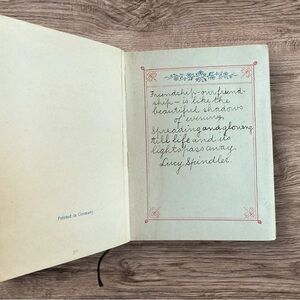 Friendship-our friend-
ship-is like the
beautiful shadows
of evening,
Spreading and glowing
till life and its
lights pass away.
Lucy Spindler.
Printed in Germany